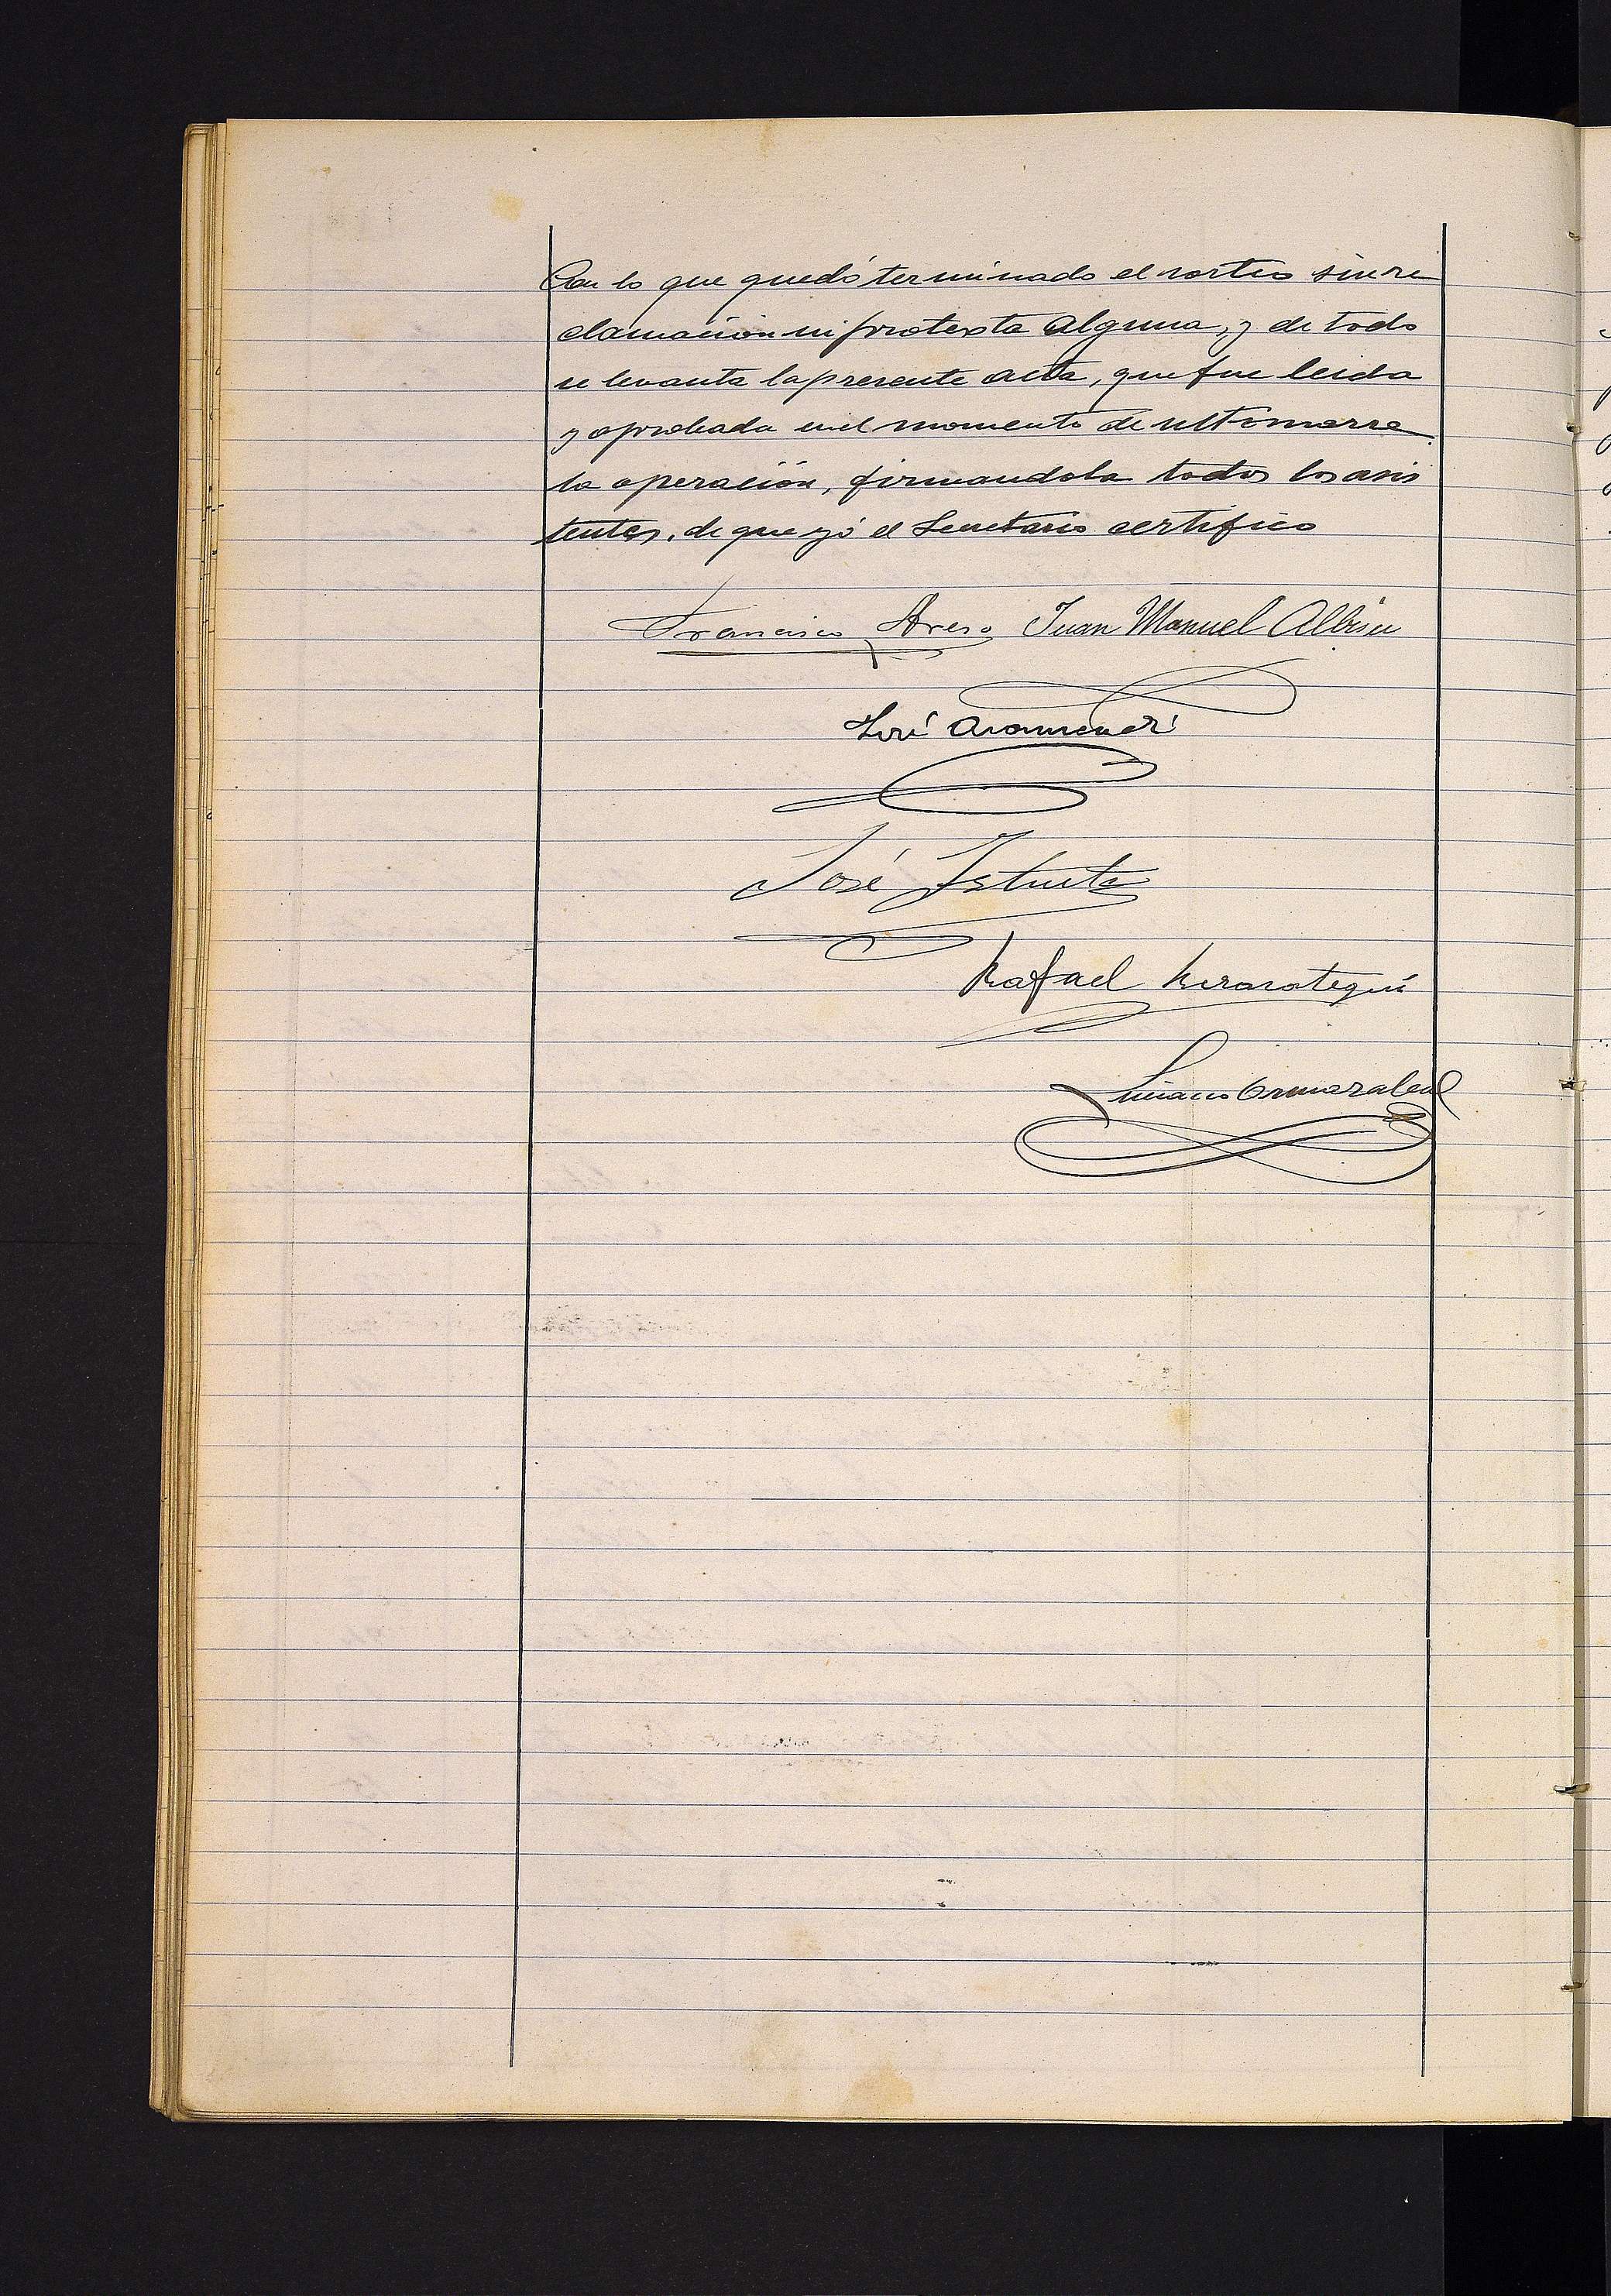 Con lo que quedó terminado el sorteo sin re
clamación ni protesta alguna, y de todo
se levanta la presente acta, que fue leida
y aprobada en el momento de ultimarse
la operación, firmandola todos los asis
tentes, de que yó el Secretario certifico
Francisco Areso Juan Manuel Albisu
José Aramendi
José Izturta
Rafael Kerasategui
Luciano Ormazabal